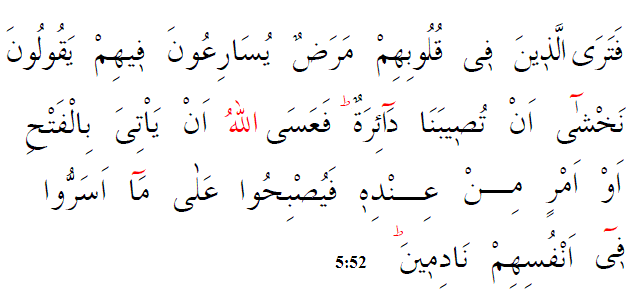 فَتَرَى الَّذ۪ينَ ف۪ى قُلُوبِهِمْ مَرَضٌ يُسَارِعُونَ ف۪يهِمْ يَقُولُونَ
نَخْشٰٓى اَنْ تُص۪يبَنَا دَٓائِرَةٌۜ فَعَسَى اللّٰهُ اَنْ يَاْتِىَ بِالْفَتْحِ
اَوْ اَمْرٍ مِـنْ عِـنْدِه۪ فَيُصْبِحُوا عَلٰى مَٓا اَسَرُّوا
ف۪ٓى اَنْفُسِهِمْ نَادِم۪ينَۜ 5:52